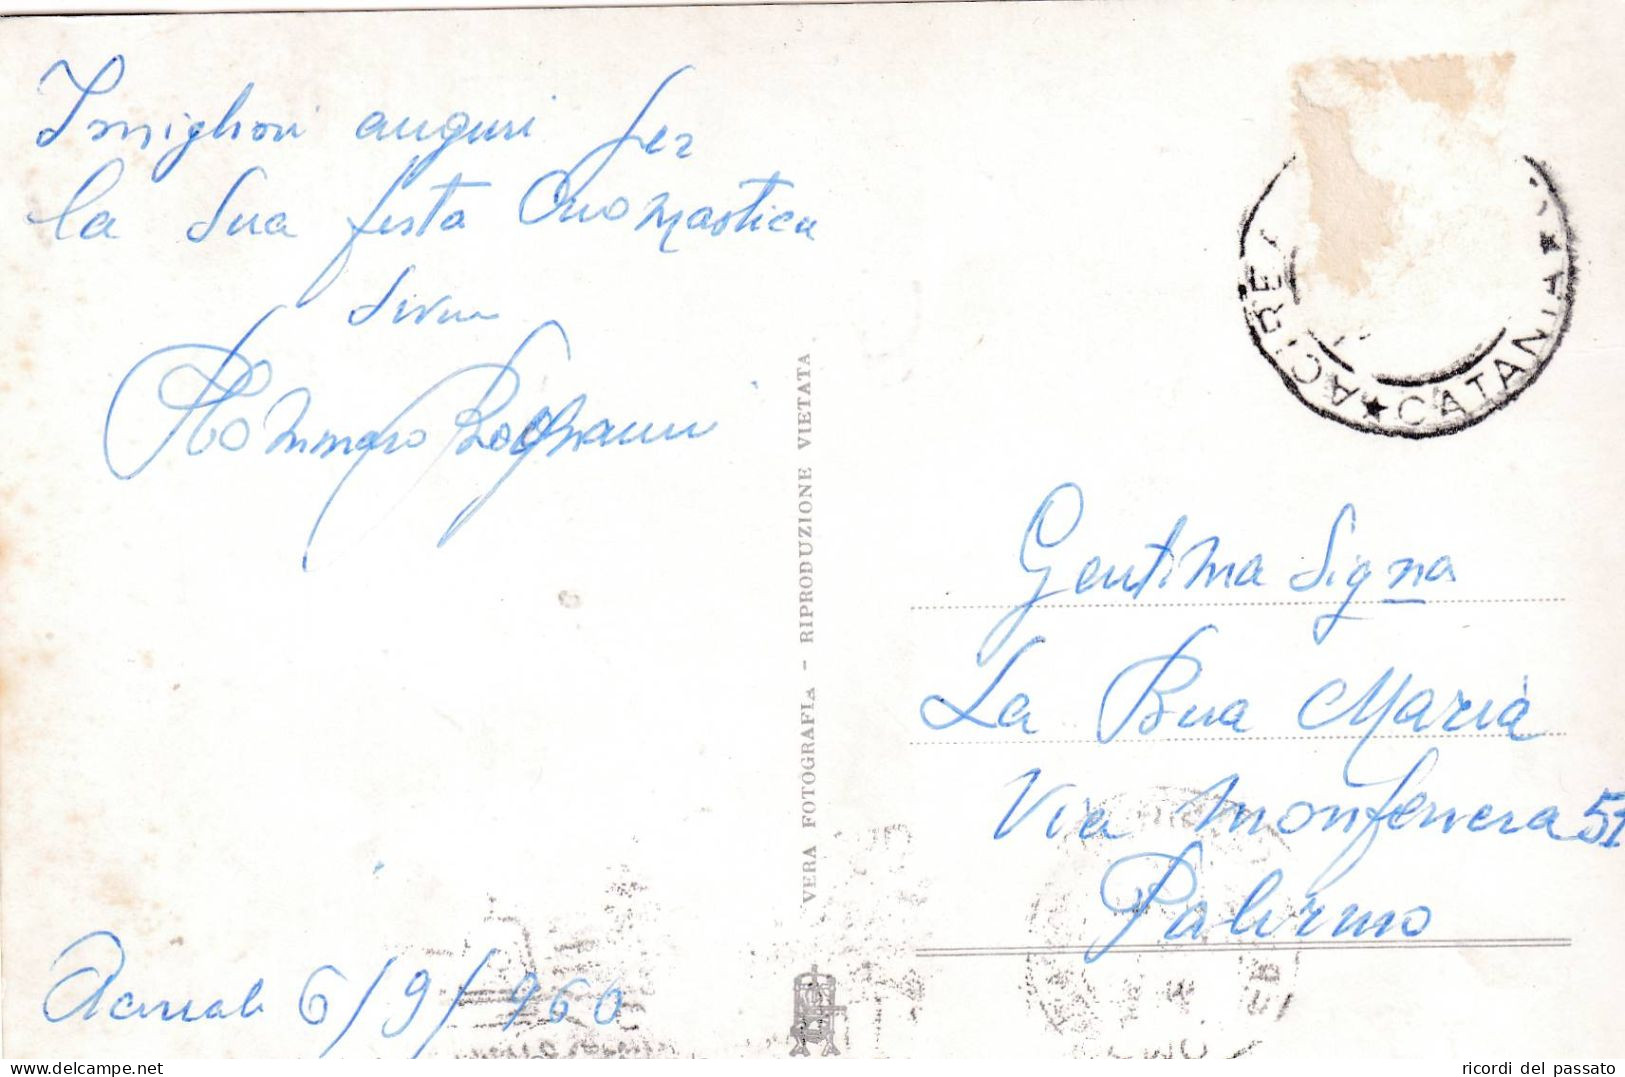 I migliori auguri per
la Sua festa Onomastica
Acireale 6/9/960
VERA FOTOGRAFIA - RIPRODUZIONE VIETATA
ACIREA
★ CATANIA ★
Gentima Signa
La Bua Maria
Via Monferrera 51
Palermo
ricordi del passato